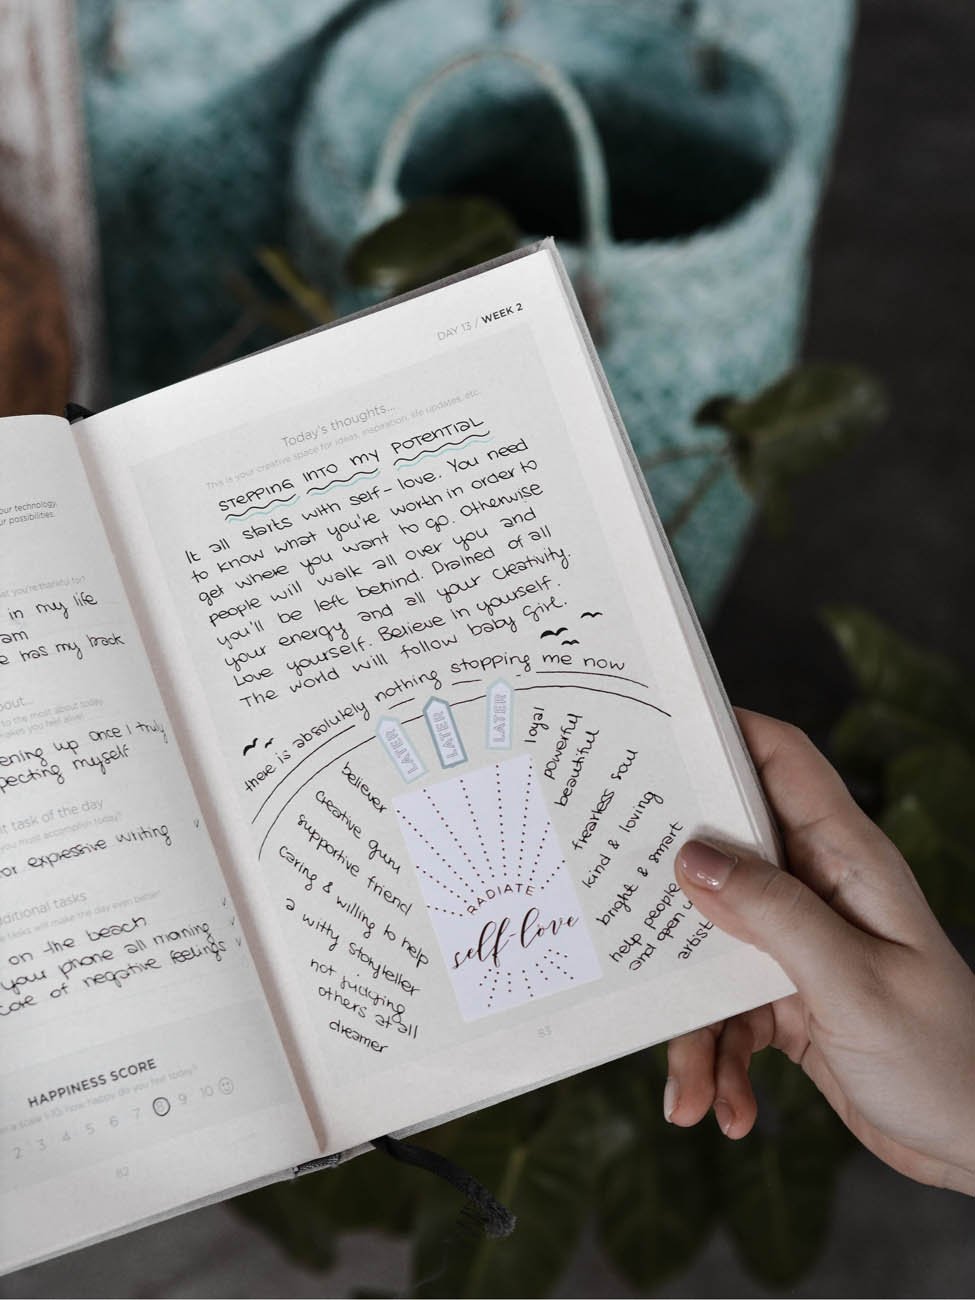 our technology.
ur possibilities.
at you're thankful for?
in my life
am
e has my back
bout...
to the most about today
makes you feel alive!
ening up once I truly
pecting myself
it task of the day
you must accomplish today?
or expressive writing
dditional tasks
tasks will make the day even better
on the beach
your phone all morning
care of negative feelings
HAPPINESS SCORE
how happy do you feel today?
2 3 4 5 6 7 8 9 10
82
DAY 13 / WEEK 2
Today's thoughts...
This is your creative space for ideas, inspiration, life updates, etc.
STEPPING INTO MY POTENTIAL
It all starts with self-love. You need
to know what you're worth in order to
get where you want to go. Otherwise
people will walk all over you and
you'll be left behind. Drained of all
your energy and all your creativity.
Love yourself. Believe in yourself.
The world will follow baby girl.
there is absolutely nothing stopping me now
LATER
LATER
LATER
believer
creative guru
supportive friend
caring & willing to help
a witty storyteller
not judging
others at all
dreamer
RADIATE
self-love
loyal
powerful
beautiful
fearless soul
kind & loving
bright & smart
help people
and open
artist
83